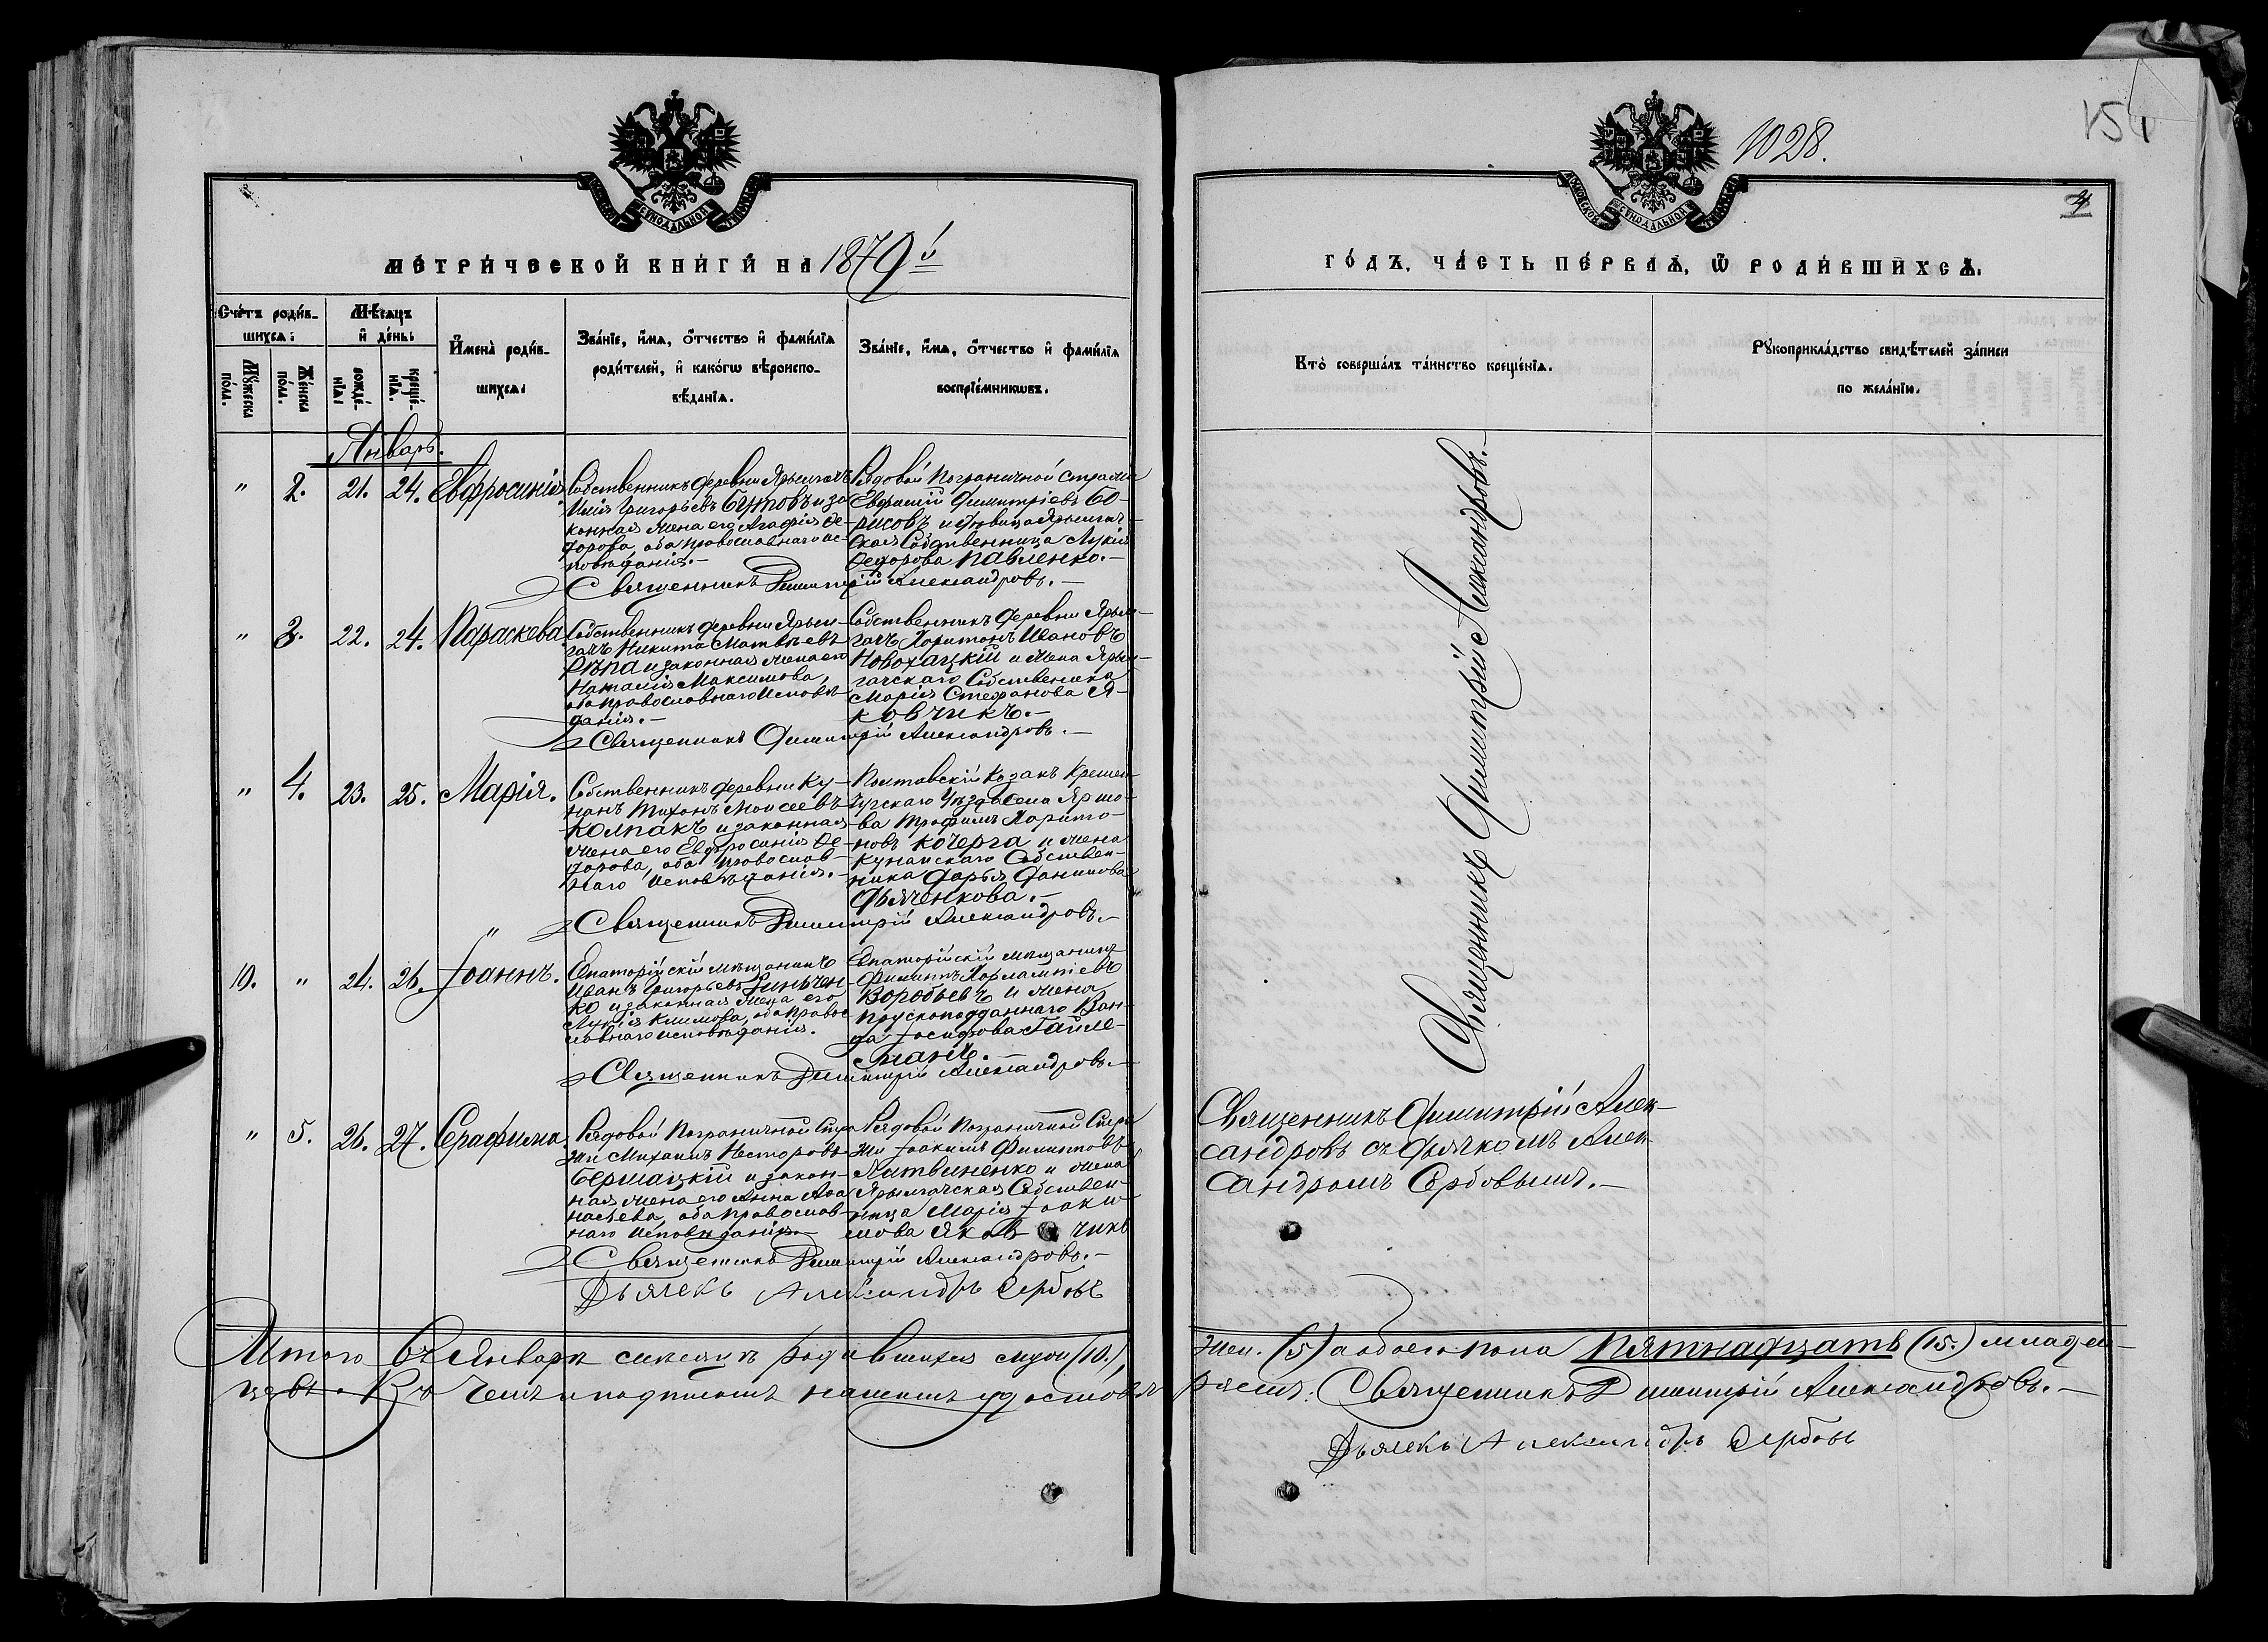 1028.
154
МОСКОВСКОЙ СѴНОДАЛЬНОЙ ТИПОГРАФІИ
МЕТРИЧЕСКОЙ КНИГИ НА 1879й
ГОДЪ, ЧАСТЬ ПЕРВАЯ, Ѿ РОДИВШИХСЯ.
Счетъ родив-
шихся:
Мужеска пола.
Женска пола.
Мѣсяцъ
и день:
рожде-
нія:
креще-
нія.
Имена родив-
шихся:
Званіе, имя, отчество и фамилія
родителей, и какогѡ вѣроиспо-
вѣданія.
Званіе, имя, отчество и фамилія
воспріемниковъ.
Кто совершалъ таинство крещенія.
Рукоприкладство свидѣтелей записи
по желанію.
Январь.
" 2. 21. 24. Евфросинія.
Собственникъ деревни Ярылгачъ
Илія Григорьевъ Бутовъ и за-
конная жена его Агафія Ѳе-
дорова, оба православнаго ис-
повѣданія.-
Рядовой Пограничной Стражи
Евфимій Димитріевъ Бо-
рисовъ и дѣвица Ярылгач-
ская Собственница Лукія
Ѳедорова Павленко.-
Священникъ Димитрій Александровъ.-
" 3. 22. 24. Параскева.
Собственникъ деревни Ярыл-
гачъ Никита Матвѣевъ
Рѣпа и законная жена его
Наталія Максимова,
оба православнаго исповѣ-
данія.-
Собственникъ деревни Ярыл-
гачъ Харитонъ Ивановъ
Новохацкій и жена Ярыл-
гачскаго Собственника
Марія Стефанова Я-
ковчикъ.-
Священникъ Димитрій Александровъ.-
" 4. 23. 25. Марія.
Собственникъ деревни Ку-
нанъ Тихонъ Моисеевъ
Колпакъ и законная
жена его Евфросинія Ѳе-
дорова, оба православ-
наго исповѣданія.-
Полтавскій Козакъ Кремен-
чугскаго Уѣзда Села
Трофимъ Харито-
новъ Кочерга и жена
Кунанскаго Собствен-
ника Дарья Данилова
Дьяченкова.-
Священникъ Димитрій Александровъ.-
10. " 24. 26. Іоаннъ.
Евпаторійскій мѣщанинъ
Иванъ Григорьевъ Зинчен-
ко и законная жена его
Лукія Климова, оба правос-
лавнаго исповѣданія.
Евпаторійскій мѣщанинъ
Филиппъ Харлампіевъ
Воробьевъ и жена
прусскоподданнаго Ван-
да Іосифова Гайле-
манъ.
Священникъ Димитрій Александровъ.-
" 5. 26. 27. Серафима.
Рядовой Пограничной Стра-
жи Михаилъ Несторовъ
Бершацкій и закон-
ная жена его Анна Аѳа-
насьева, оба православ-
наго исповѣданія.-
Рядовой Пограничной Стра-
жи Іоакимъ Филиповъ
Литвиненко и жена
Ярылгачская Собствен-
ница Марія Іоаки-
мова Яковчикъ
Священникъ Димитрій Александровъ.-
Дьячекъ Александръ Сербовъ
Священникъ Димитрій Александровъ.-
Священникъ Димитрій Алек-
сандровъ съ дьячкомъ Алек-
сандромъ Сербовымъ.-
Итого въ Январѣ мѣсяцѣ родившихся муж. (10.), жен. (5) а обоего пола Пятнадцать (15.) младен-
цевъ. Въ чемъ и подписомъ нашимъ удостовѣряемъ: Священникъ Димитрій Александровъ.-
Дьячекъ Александръ Сербовъ